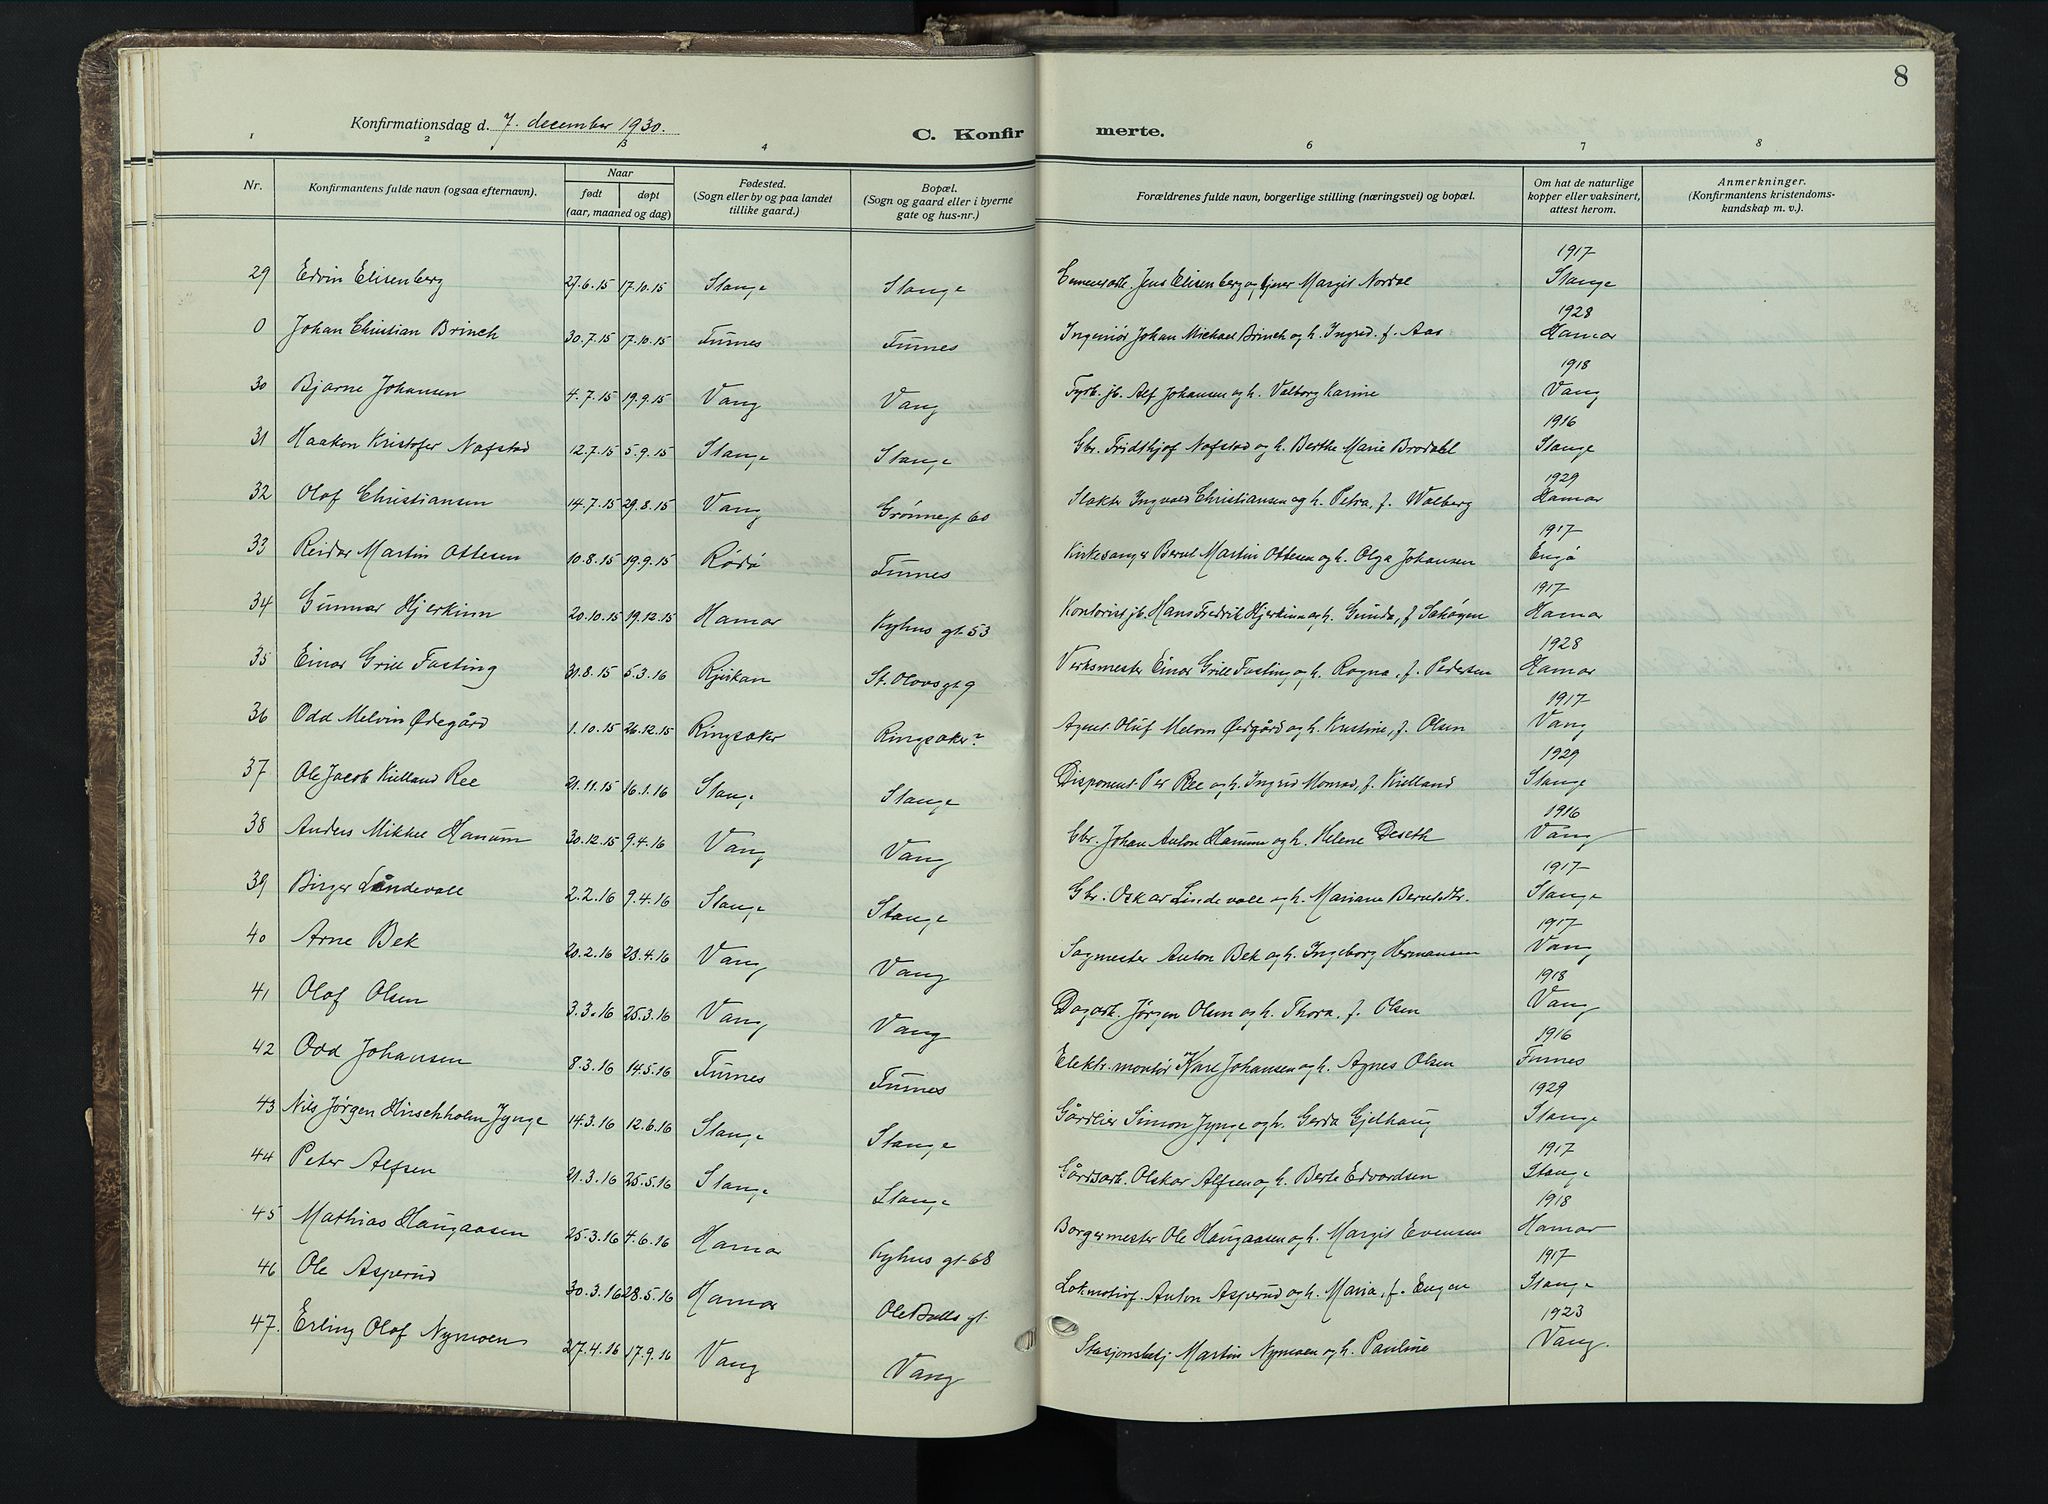 8
Konfirmationsdag d. 7. december 1930.
C. Konfirmerte.
1 2 3 4 6 7 8
Nr. Konfirmantens fulde navn (ogsaa efternavn). Naar født døpt (aar, maaned og dag) Fødested. (Sogn eller by og paa landet tillike gaard.) Bopæl. (Sogn og gaard eller i byerne gate og hus-nr.) Forældrenes fulde navn, borgerlige stilling (næringsvei) og bopæl. Om hat de naturlige kopper eller vaksinert, attest herom. Anmerkninger. (Konfirmantens kristendoms-kundskap m. v.).
29 Edvin Elisenberg 27.6.15 17.10.15 Stange Stange Jens Elisenberg og Margit Nordal 1917 Stange
0 Johan Christian Brinch 30.7.15 17.10.15 Furnes Furnes Ingeniør Johan Michael Brinch og h. Ingrid f. Aas 1928 Hamar
30 Bjarne Johansen 4.7.15 19.9.15 Vang Vang Fyrb. jb. Alf Johansen og h. Valborg Karine 1918 Vang
31 Haakon Kristofer Nafstad 12.7.15 5.9.15 Stange Stange Gbr. Fridthjof Nafstad og h. Berthe Marie Brodahl 1916 Stange
32 Olaf Christiansen 14.7.15 29.8.15 Vang Grønnegt 60 Slakter Ingvald Christiansen og h. Petra, f. Walberg 1929 Hamar
33 Reidar Martin Ottesen 10.8.15 19.9.15 Rödö Furnes Kirkesanger Bernt Martin Ottesen og h. Olga Johansen 1917
34 Gunnar Hjerkinn 20.10.15 19.12.15 Hamar Kyhus gt. 53 Kontorist jb. Hans Fredrik Hjerkinn og h. Gunda, f. 1917 Hamar
35 Einar Grill Fasting 31.8.15 5.3.16 Rjukan St. Olavs gt 9 Verksmester Einar Grill Fasting og h. Ragna, f. Pedersen 1928 Hamar
36 Odd Melvin Ødegård 1.10.15 26.12.15 Ringsaker Ringsaker? Agent Oluf Melvin Ødegård og h. Kristine, f. Olsen 1917 Vang
37 Ole Jacob Kielland Ree 21.11.15 16.1.16 Stange Stange Disponent Per Ree og h. Ingrid Monrad, f. Kielland 1929 Stange
38 Anders Mikkel Hanum 30.12.15 9.4.16 Vang Vang Gbr. Johan Anton Hanum og h. Helene Deseth 1916 Vang
39 Birger Lindevall 2.2.16 9.4.16 Stange Stange Gbr. Oskar Lindevall og h. Mariane Berntsdtr. 1917 Stange
40 Arne Bek 20.2.16 23.4.16 Vang Vang Sagmester Anton Bek og h. Ingeborg Hermansen 1917 Vang
41 Olaf Olsen 3.3.16 25.3.16 Vang Vang Dagarb. Jørgen Olsen og h. Thora, f. Olsen 1918 Vang
42 Odd Johansen 8.3.16 14.5.16 Furnes Furnes Elektr. montör Karl Johansen og h. Agnes Olsen 1916 Furnes
43 Nils Jørgen Hirschholm Jynge 14.3.16 12.6.16 Stange Stange Gårdeier Simon Jynge og h. Gerda Gjelhaug 1929 Stange
44 Peter Alfsen 21.3.16 25.5.16 Stange Stange Gårdsarb. Olskar Alfsen og h. Berte Edvardsen 1917 Stange
45 Mathias Haugaasen 25.3.16 4.6.16 Hamar Kyhus gt 68 Borgermester Ole Haugaasen og h. Margit Evensen 1918 Hamar
46 Ole Asperud 30.3.16 28.5.16 Hamar Ole Bulls gt. Lokomotivf. Anton Asperud og h. Maria, f. Engen 1917 Stange
47. Erling Olaf Nymoen 27.4.16 17.9.16 Vang Vang Stasjonsbetj Martin Nymoen og h. Pauline 1923 Vang.